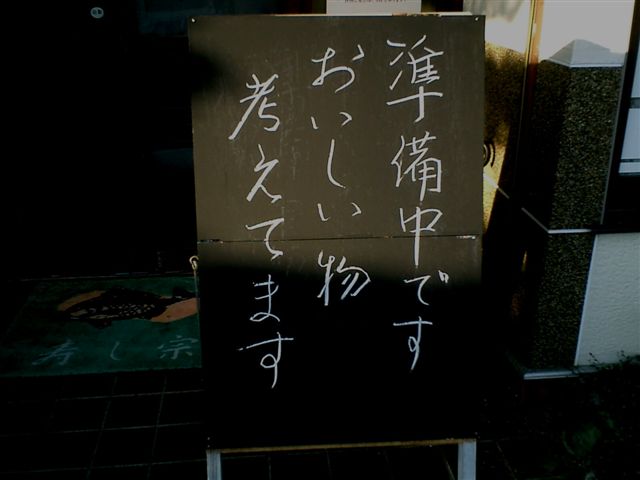 準備中です
おいしい物
考えてます
寿し宗